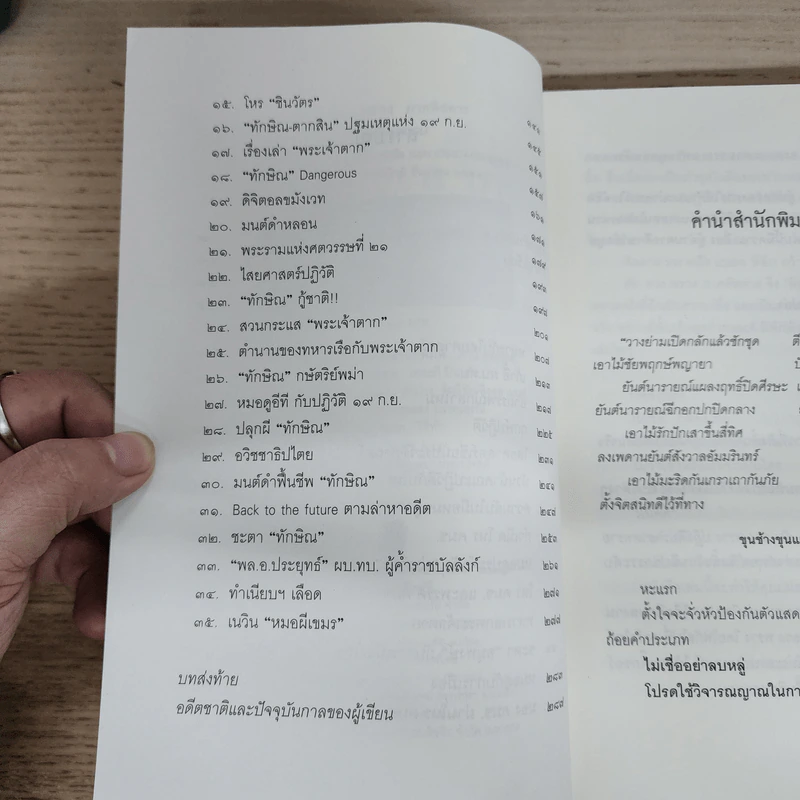 ๑๕. โหร “ชินวัตร”
๑๖. “ทักษิณ-ตากสิน” ปฐมเหตุแห่ง ๑๙ ก.ย.
๑๗. เรื่องเล่า “พระเจ้าตาก”
๑๘. “ทักษิณ” Dangerous
๑๙. ดิจิตอลขมังเวท
๒๐. มนต์ดำหลอน ๑๖๑
๒๑. พระรามแห่งศตวรรษที่ ๒๑ ๑๗๑
๒๒. ไสยศาสตร์ปฏิวัติ
๒๓. “ทักษิณ” กู้ชาติ!!
๒๔. สวนกระแส “พระเจ้าตาก”
๒๕. ตำนานของทหารเรือกับพระเจ้าตาก ๒๐๑
๒๖. “ทักษิณ” กษัตริย์พม่า
๒๗. หมอดูอีที กับปฏิวัติ ๑๙ ก.ย.
๒๘. ปลุกผี “ทักษิณ”
๒๙. อวิชชาธิปไตย ๒๓๑
๓๐. มนต์ดำฟื้นชีพ “ทักษิณ” ๒๔๑
๓๑. Back to the future ตามล่าหาอดีต
๓๒. ชะตา “ทักษิณ” ๒๕๓
๓๓. “พล.อ.ประยุทธ์” ผบ.ทบ. ผู้ค้ำราชบัลลังก์ ๒๖๑
๓๔. ทำเนียบฯ เลือด ๒๗๑
๓๕. เนวิน “หมอผีเขมร” ๒๗๗
บทส่งท้าย ๒๘๓
อดีตชาติและปัจจุบันกาลของผู้เขียน ๒๘๗
คำนำสำนักพิม
“วางย่ามเปิดกลักแล้วชักชุด
เอาไม้ชัยพฤกษ์พญายา
ยันต์นารายณ์แผลงฤทธิ์ปิดศีรษะ
ยันต์นารายณ์ฉีกอกปกปิดกลาง
เอาไม้รักปักเสาขึ้นสี่ทิศ
ลงเพดานยันต์สังวาลอัมมรินทร์
เอาไม้มะริดกันเกราเถากันภัย
ตั้งจิตสนิทดีไว้ที่ทาง
ขุนช้างขุนแ
หะแรก
ตั้งใจจะจั่วหัวป้องกันตัวแสด
ถ้อยคำประเภท
ไม่เชื่ออย่าลบหลู่
โปรดใช้วิจารณญาณในกา